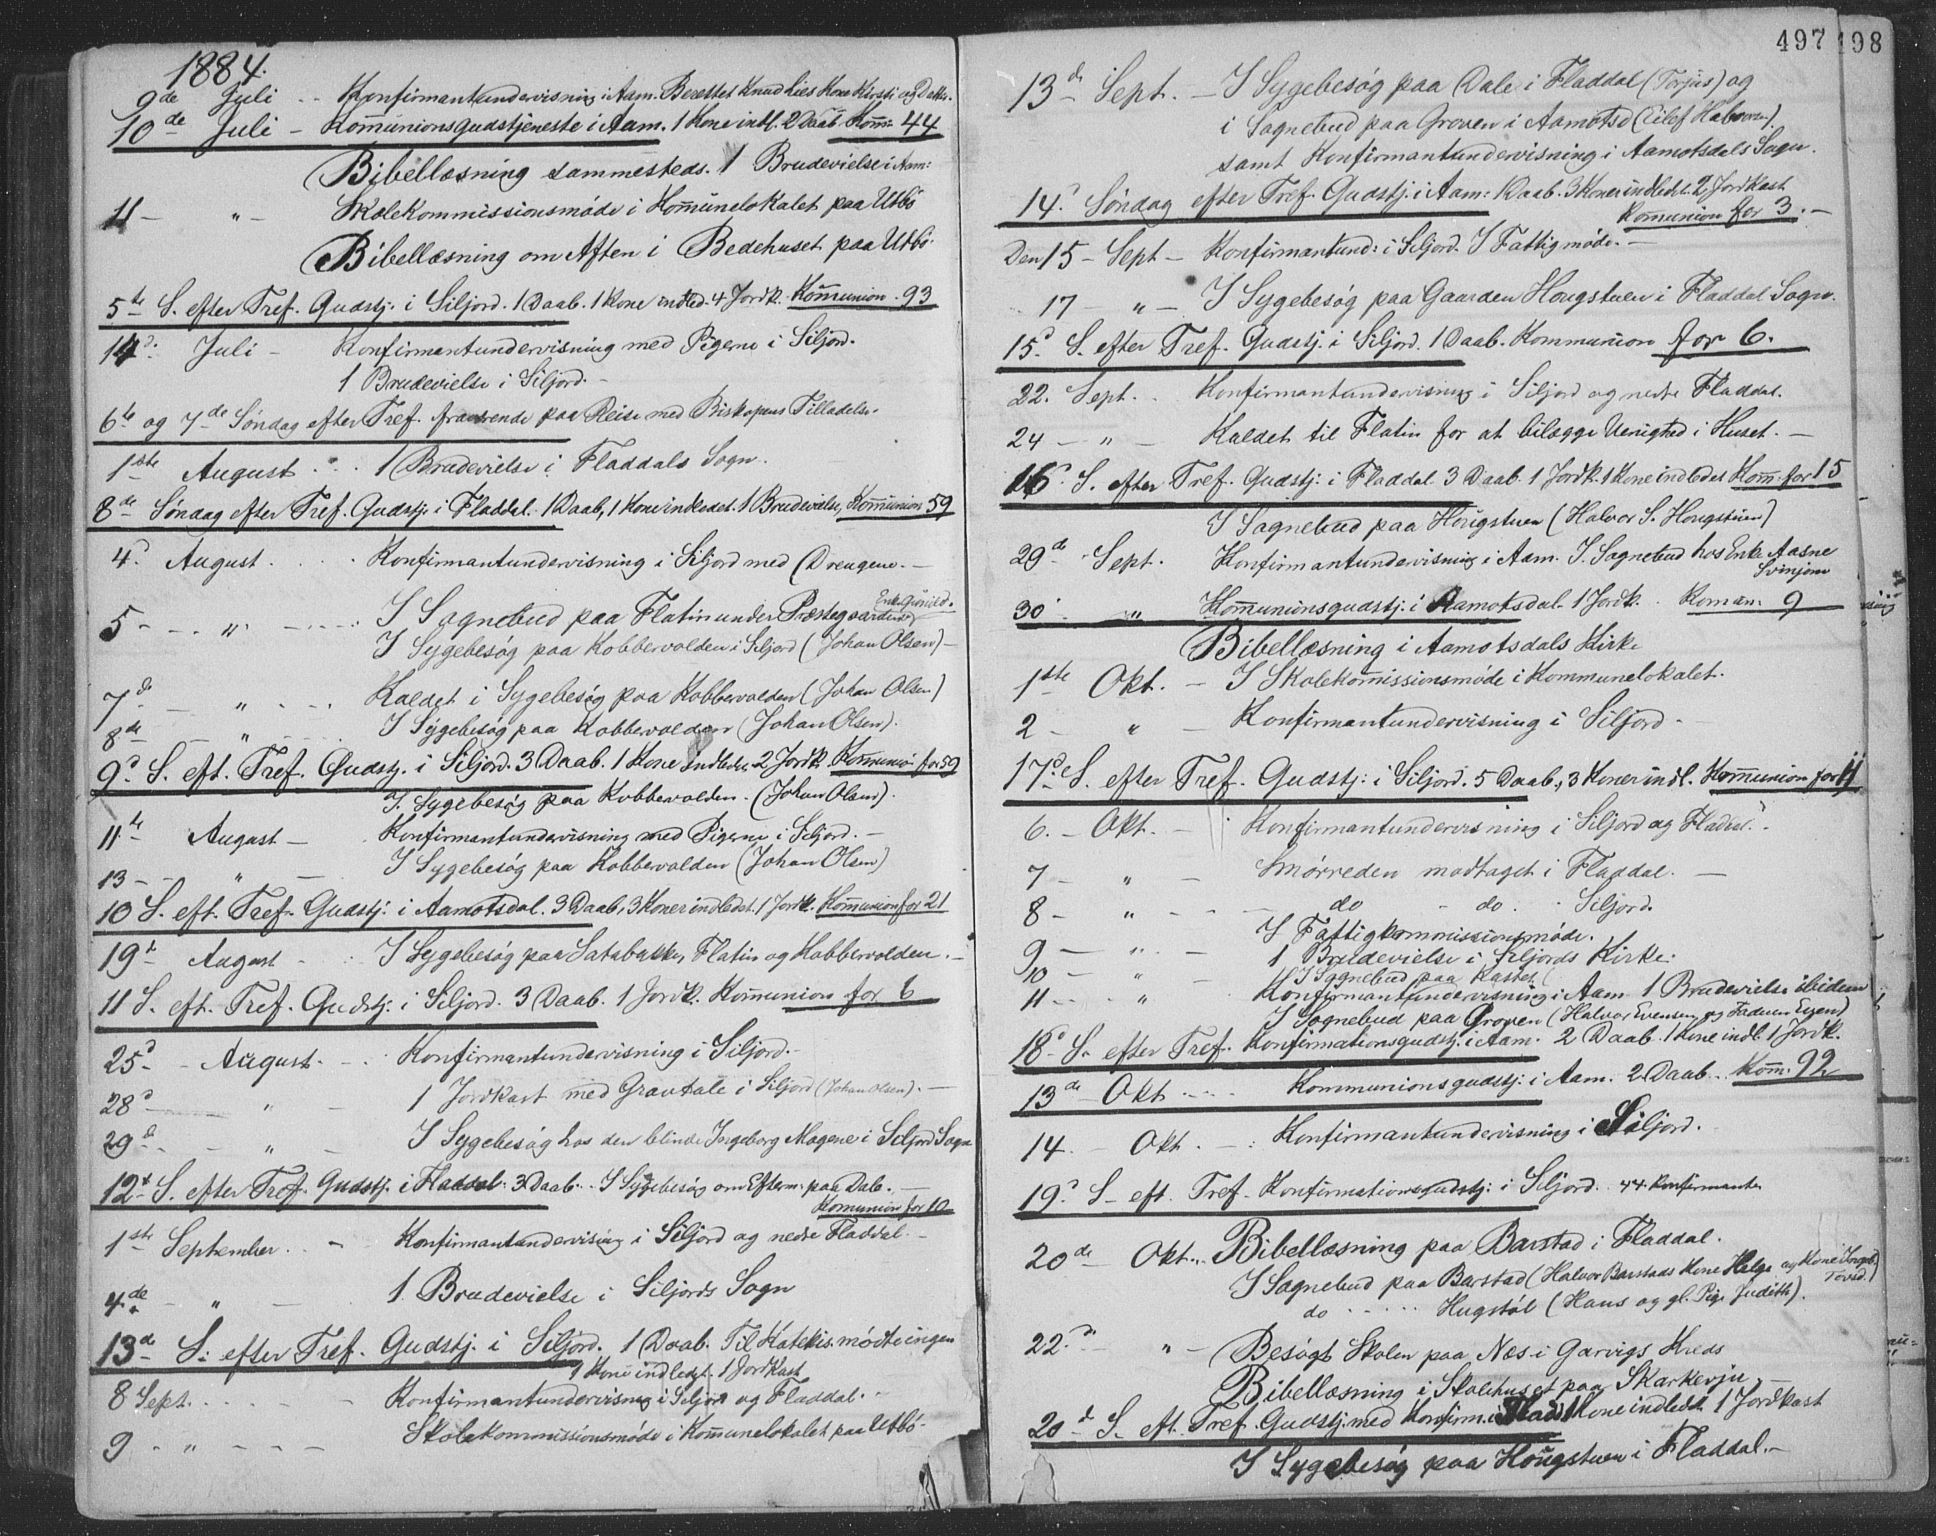 1884.
9de Juli .. Konfirmantundervisning i Aam. Berettet Knud Lies Kone Kirsti og Datter.
10de Juli – Kommunionsgudstjeneste i Aam. 1 Kone indl. 2 Daab Kom: 44
Bibellæsning sammesteds. 1 Brudevielse i Aam:
11 – „ – Skolekommissionsmøde i Komunelokalet paa Utbö
Bibellæsning om Aften i Bedehuset paa Utbö.
5te S. efter Tref. Gudstj. i Siljord. 1 Daab. 1 Kone indled. 4 Jordk. Kommunion. 93
14d. Juli – Konfirmantundervisning med Pigerne i Siljord.
1 Brudevielse i Siljord. –
6te og 7de Søndag efter Tref. fraværende paa Reise med Biskopens Tilladelse.
1ste August ... 1 Brudevielse i Fladdals Sogn.
8de Søndag efter Tref. Gudstj. i Fladdal. 1 Daab, 1 Kone indledet. 1 Brudevielse, Kommunion 59
4d August .... Konfirmantundervisning i Siljord med Drengene. –
Enke Gunild.
5 – – „ – I Sognebud paa Flatin under Præstegaarden
I Sygebesøg paa Kobbervolden i Siljord (Johan Olsen) –
7de – „ – Kaldet i Sygebesøg paa Kobbervolden (Johan Olsen)
8de – „ – I Sygebesøg paa Kobbervolden (Johan Olsen).
9d S. eft. Tref. Gudstj. i Siljord. 3 Daab. 1 Kone indledet, 2 Jordk. Kommunion for 59
I Sygebesøg paa Kobbervolden. (Johan Olsen).
11te August – Konfirmantundervisning med Pigerne i Siljord. –
13 – „ – I Sygebesøg paa Kobbervolden (Johan Olsen)
10 S. eft. Tref. Gudstj. i Aamotsdal. 3 Daab, 3 Koner indledet. 1 Jordk. Kommunion for 21
19d August – I Sygebesøg paa Flatin og Kobbervolden. –
11 S. eft. Tref. Gudstj. i Siljord. 3 Daab. 1 Jordk. Kommunion for 6
25d – August. – Konfirmantundervisning i Siljord. –
28d – „ – 1 Jordkast med Gravtale i Siljord (Johan Olsen). –
29de – „ – I Sygebesøg hos den blinde Ingeborg Mogene i Siljord Sogn
12te S. efter Tref. Gudstj. i Fladdal. 3 Daab. I Sygebesøg om Efterm. paa Dale. –
Komunion for 10
1ste September .. – Konfirmantundervisning i Siljord og nedre Fladdal. –
4de – „ – 1. Brudevielse i Siljords Sogn
13de S. efter Tref. Gudstj. i Siljord. 1 Daab. Til Katekis. mødte ingen
1 Kone indledet. 1 Jordkast
8 Sept. .... – Konfirmantundervisning i Siljord og Fladdal. ..
9 – „ – – – Skolekommissionsmøde i Kommunelokalet paa Utbö.
497 498
13de Sept. – I Sygebesøg paa Dale i Fladdal (Torjus) og
i Sognebud paa Groven i Aamotsd
samt Konfirmantundervisning i Aamotsdals Sogn.
14d Søndag efter Tref. Gudstj. i Aam: 1 Daab. 3 Koner indledet. 2 Jordkast
Komunion for 3. –
Den 15 – Sept – Konfirmantund: i Siljord. I Fattigmøde. –
17 – „ – I Sygebesøg paa Gaarden Hougstuen i Fladdal Sogn.
15d S. efter Tref. Gudstj. i Siljord. 1 Daab. Kommunion for 6.
22. Sept. .. Konfirmantundervisning i Siljord og nedre Fladdal.
24 – „ – Kaldet til Flatin for at bilægge Uenighed i Huset. –
16d S. efter Tref. Gudstj: i Fladdal 3 Daab. 1 Jordk. 1 Kone indledet Kom: for 15
I Sognebud paa Hougstuen (Halvor S. Hougstuen)
29de Sept. Konfirmantundervisning i Aam. I Sognebud hos Enke Aasne
Svinjom
30 „ Kommunionsgudstj. i Aamotsdal. 1 Jordk. Komun: 9
Bibellæsning i Aamotsdals Kirke
1ste Okt. – I Skolekommissionsmøde i Kommunelokalet.
2 – „ – Konfirmantundervisning i Siljord –
17de S. efter Tref. Gudstj: i Siljord. 5 Daab., 3 Koner indl. Kommunion for 11
6. – Okt. – Konfirmantundervisning i Siljord og Fladdal.
7 – „ – Smørreden modtaget i Fladdal. –
8 – „ – – do – do. – Siljord.
9 – „ – I Fattigkommissionsmøde.
10 – „ – 1 Brudevielse i Siljords Kirke.
I Sognebud paa
11 – „ – Konfirmantundervisning i Aam. 1 Brudevielse ibidem
I Sognebud paa Groven (Halvor Evensen og Faderen Even)
18d S. efter Tref. Konfirmationsgudstj. i Aam. 2 Daab. 1 Kone indl. 1 Jordk.
13de – Okt. .... Kommunionsgudstj: i Aam. 2 Daab. Kom: 92
14. – Okt. – : Konfirmantundervisning i Siljord.
19d S. eft. Tref. Konfirmationsgudstj: i Siljord. 44 Konfirmanter
20de – Okt. .. Bibellæsning paa Barstad i Fladdal.
I Sognebud paa Barstad (Halvor Barstads Kone Helge og Kone Ingeb. Tovsd.)
do ..... Hugstøl (Hans og gl. Pige Judith).
22.d „ – Besøgt Skolen paa Næs i Garvigs Kreds
Bibellæsning i Skolehuset paa Skarkevju. –
20de S. eft. Tref. Gudstj. med Konfirm. i Flad. 1 Kone indledet. 1 Jordkast
I Sygebesøg paa Hougstuen i Fladdal. –